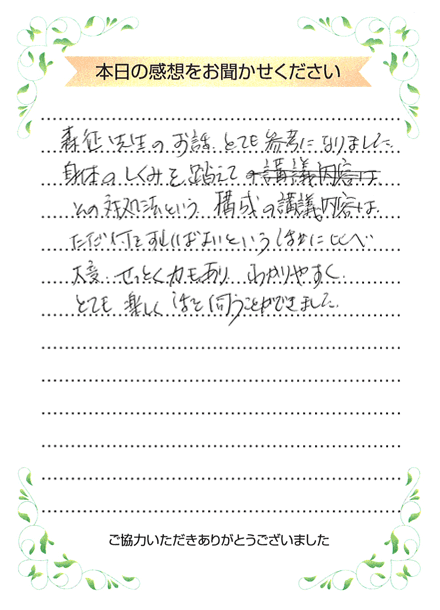 本日の感想をお聞かせください
森征先生のお話 とても参考になりました。
身体のしくみを踏えて の講義内容は
その対処法という 構成の講義内容は、
ただ何をすればよいという に比べ
大変 せっとく力もあり わかりやすく
とても楽しく 伺うことができました。
ご協力いただきありがとうございました